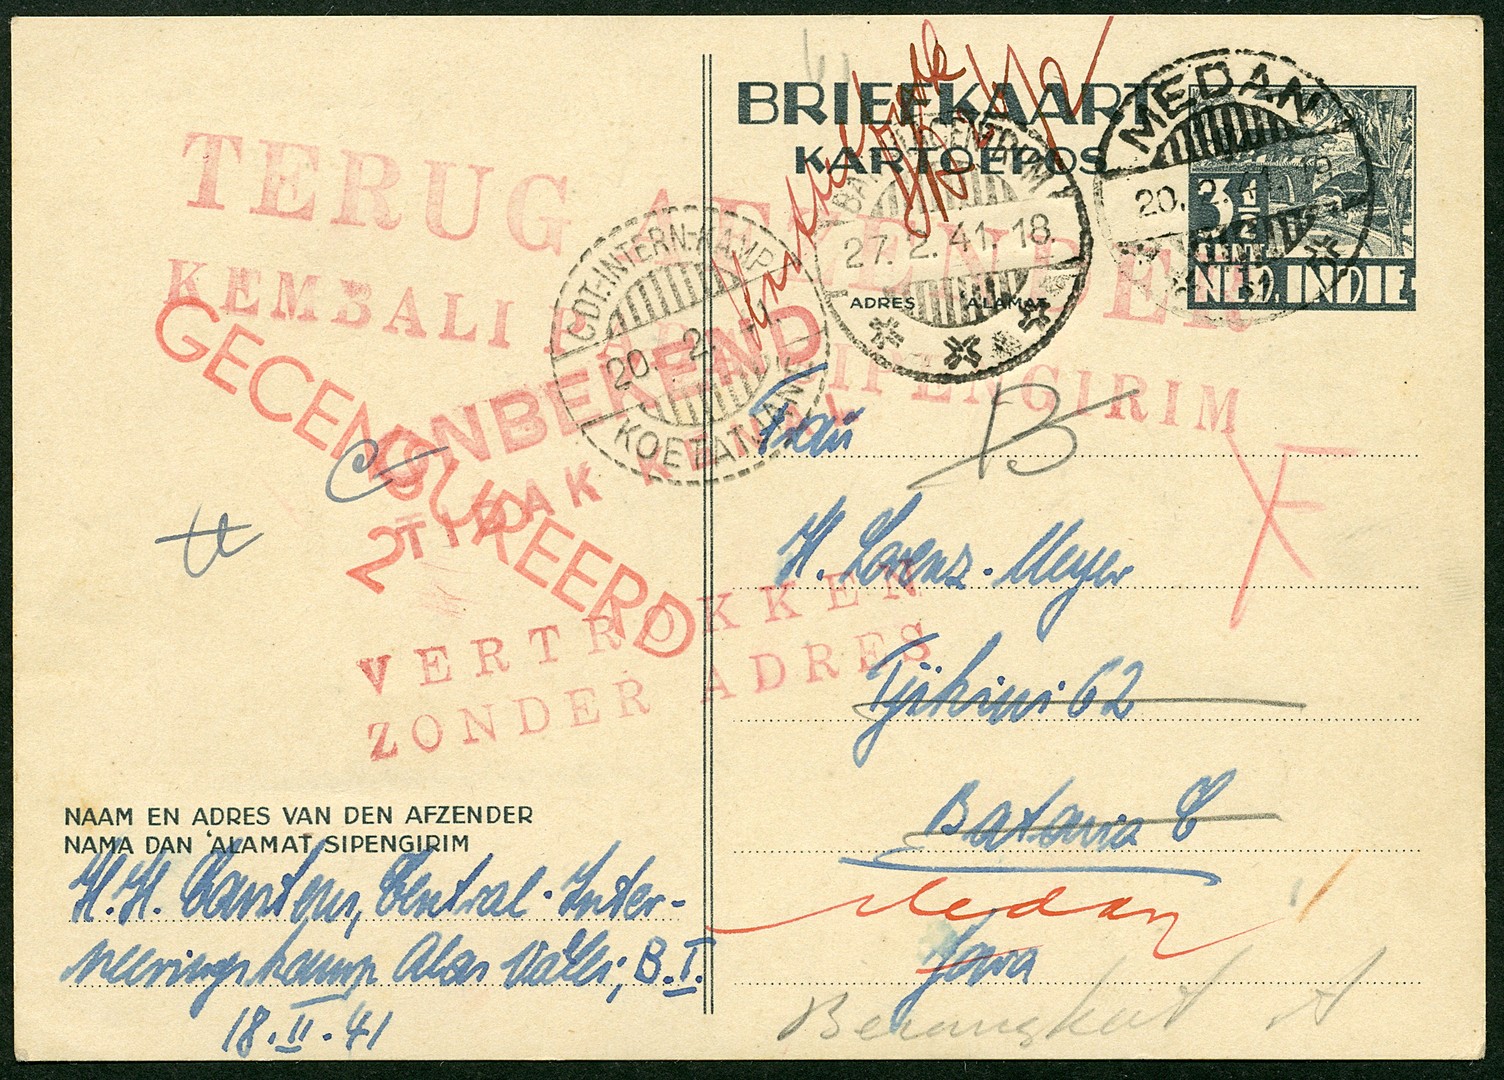 BRIEFKAART
KARTOEPOS
MEDAN
20. 2. 41. 19
3½
CENT
NED. INDIE
27. 2. 41. 18
ADRES 'ALAMAT
CDT. INTERN. KAMP
20. 2. 41.
KOETATJANE
TERUG AFZENDER
KEMBALI PADA SIPENGIRIM
GECENSUREERD
2
ONBEKEND
TIDAK KENAL
VERTROKKEN
ZONDER ADRES
B
Frau
H. Lorenz-Meyer
Tjikini 62
Batavia C
Medan
Java
Berangkat
NAAM EN ADRES VAN DEN AFZENDER
NAMA DAN 'ALAMAT SIPENGIRIM
H. H. Carstens, Central-Inter-
neeringskamp Alas Vallei, B. I.
18. II. 41